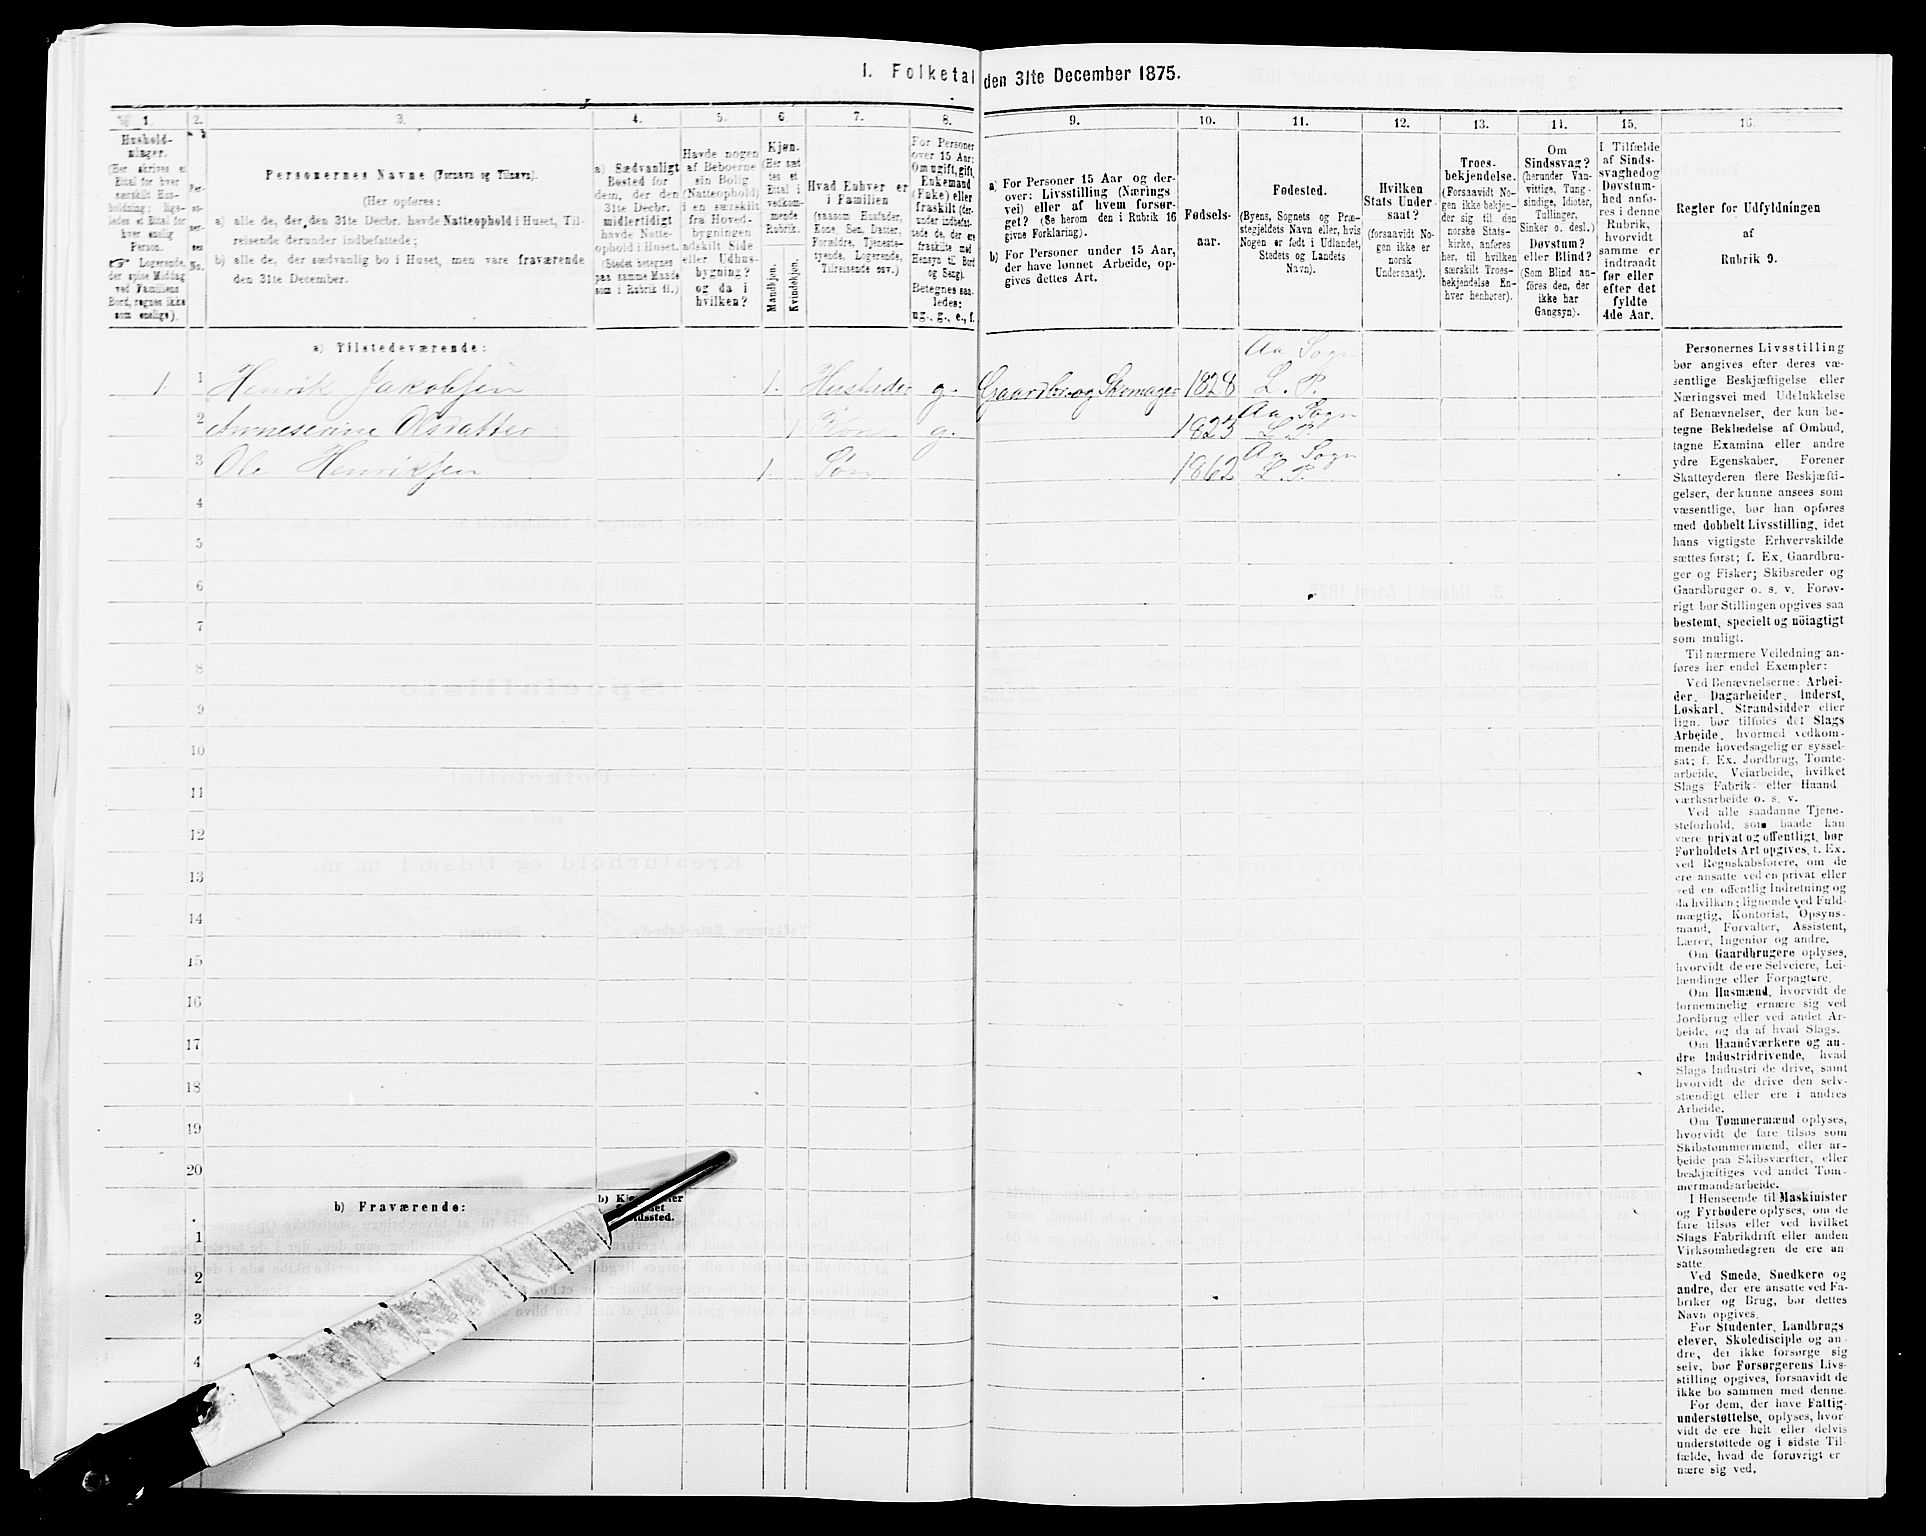 1. Folketal den 31te December 1875.
1. 2. 3. 4. 5. 6. 7. 8. 9. 10. 11. 12. 13. 14. 15. 16.
Hushold-
ninger.
(Her skrives et
Ettal for hver
særskilt Hus-
holdning; lige-
ledes et Ettal for
hver enslig
Person.
Logerende,
der spise Middag
ved Familiens
Bord, regnes ikke
som enslige).
Per-
so-
ner-
nes
No.
Personernes Navne (Fornavn og Tilnavn).
(Her opføres:
a) alle de, der den 31te Decbr. havde Natteophold i Huset, Til-
reisende derunder indbefattede;
b) alle de, der sædvanlig bo i Huset, men vare fraværende
den 31te December.
a) Sædvanligt
Bosted for
dem, der den
31te Decbr.
midlertidigt
havde Natte-
ophold i Huset.
(Stedet betegnes
paa samme Maade
som i Rubrik 11.)
Havde nogen
af Beboerne
sin Bolig
(Natteophold)
i en særskilt
fra Hoved-
bygningen
adskilt Side
eller Udhus-
bygning?
og da i
hvilken?
Kjøn.
(Her sæt
tes et
Ettal i
vedkom-
mende
Rubrik.
Mandkjøn.
Kvindekjøn.
Hvad Enhver er
i Familien
(saasom Husfader,
Kone, Søn, Datter,
Forældre, Tjeneste-
tyende, Logerende,
Tilreisende osv.)
For Personer
over 15 Aar:
Om ugift, gift,
Enkemand
(Enke) eller
fraskilt (der-
under indbefat-
tede de, der ere
fraskilte med
Hensyn til Bord
og Seng).
Betegnes saa-
ledes:
ug., g., e., f.
a) For Personer 15 Aar og der-
over: Livsstilling (Nærings
vei) eller af hvem forsør-
get? (Se herom den i Rubrik 16
givne Forklaring).
b) For Personer under 15 Aar,
der have lønnet Arbeide, op-
gives dettes Art.
Fødsels-
aar.
Fødested.
(Byens, Sognets og Præ-
stegjeldets Navn eller, hvis
Nogen er født i Udlandet,
Stedets og Landets
Navn).
Hvilken
Stats Under-
saat?
(forsaavidt No-
gen ikke er
norsk
Undersaat).
Troes-
bekjendelse.
(Forsaavidt No-
gen ikke bekjen-
der sig til den
norske Stats-
kirke, anføres
her, til hvilken
særskilt Troes-
bekjendelse En-
hver henhører).
Om
Sindssvag?
(herunder Van-
vittige, Tung-
sindige, Idioter,
Tullinger,
Sinker o. desl.)
Døvstum?
eller Blind?
(Som Blind an-
føres den, der
ikke har
Gangsyn).
I Tilfælde
af Sinds-
svaghed og
Døvstum-
hed anfø-
res i denne
Rubrik,
hvorvidt
samme er
indtraadt
før eller
efter det
fyldte
4de Aar.
Regler for Udfyldningen
af
Rubrik 9.
a) Tilstedeværende:
1. 1 Henrik Jakobsen 1. Husfader g. Gaardbr. og Skomager 1828 Aa Sogn L. P.
2 Anneserine Olsdatter 1 Kone g. 1825 Aa Sogn L. P.
3 Ole Henriksen 1. Søn 1862 Aa Sogn L. P.
4
5
6
7
8
9
10
11
12
13
14
15
16
17
18
19
20
b) Fraværende:
1
2
3
4
Personernes Livsstilling
bør angives efter deres væ-
sentlige Beskjæftigelse eller
Næringsvei med Udelukkelse
af Benævnelser, der kun be-
tegne Beklædelse af Ombud,
tagne Examina eller andre
ydre Egenskaber. Forener
Skatteyderen flere Beskjæfti-
gelser, der kunne ansees som
væsentlige, bør han opføres
med dobbelt Livsstilling, idet
hans vigtigste Erhvervskilde
sættes først; f. Ex. Gaardbru-
ger og Fisker; Skibsreder og
Gaardbruger o. s. v. Forøv-
rigt bør Stillingen opgives saa
bestemt, specielt og nöiagtigt
som muligt.
Til nærmere Veiledning an-
føres her endel Exempler:
Ved Benævnelserne: Arbei-
der, Dagarbeider, Inderst,
Løskarl, Strandsidder eller
lign. bør tilføies det Slags
Arbeide, hvormed vedkom-
mende hovedsagelig er syssel-
sat; f. Ex. Jordbrug, Tomte-
arbeide, Veiarbeide, hvilket
Slags Fabrik- eller Haand
værksarbeide o. s. v.
Ved alle saadanne Tjene-
steforhold, som baade kan
være privat og offentligt, bør
Forholdets Art opgives, t. Ex.
ved Regnskabsførere, om de
ere ansatte ved en privat eller
ved en offentlig Indretning og
da hvilken; lignende ved Fuld-
mægtig, Kontorist, Opsyns-
mand, Forvalter, Assistent,
Lærer, Ingeniør og andre.
Om Gaardbrugere oplyses,
hvorvidt de ere Selveiere, Lei-
lændinge eller Forpagtere.
Om Husmænd, hvorvidt de
fornemmelig ernære sig ved
Jordbrug eller ved andet Ar-
beide, og da af hvad Slags.
Om Haandværkere og an-
dre Industridrivende, hvad
Slags Industri de drive, samt
hvorvidt de drive den selv-
stændigt eller ere i andres
Arbeide.
Om Tømmermænd oplyses,
hvorvidt de fare tilsøs som
Skibstømmermænd, eller ar-
beide paa Skibsværfter, eller
beskjæftiges ved andet Tøm-
mermandsarbeide.
I Henseende til Maskinister
og Fyrbødere oplyses, om de
fare tilsøs eller ved hvilket
Slags Fabrikdrift eller anden
Virksomhedsgren de ere an
satte.
Ved Smede, Snedkere og
andre, der ere ansatte ved Fa-
briker og Brug, bør dettes
Navn opgives.
For Studenter, Landbrugs
elever, Skoledisciple og an-
dre, der ikke forsørge sig
selv, bør Forsørgerens Livs-
stilling opgives, forsaavidt de
ikke bo sammen med denne.
For dem, der have Fattig-
understøttelse, oplyses, hvor-
vidt de ere helt eller delvis
understøttede og i sidste Til-
fælde, hvad de forøvrigt er
nære sig ved.